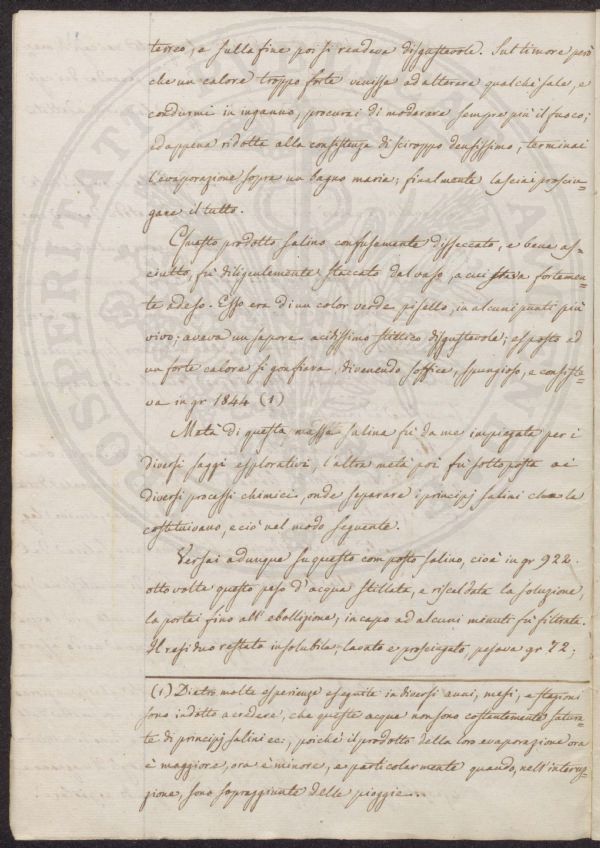 terreo, e sulla fine poi si rendeva disgustevole. Sul timore però
che un calore troppo forte venisse ad alterare qualche sale, e
condurmi in inganno, procurai di moderare sempre più il fuoco;
ed appena ridotta alla consistenza di sciroppo densissimo, terminai
l'evaporazione sopra un bagno maria; finalmente lasciai prosciu=
gare il tutto.
Questo prodotto salino confusamente disseccato, e bene as=
ciutto, fu diligentemente staccato dal vaso, a cui stava fortemen=
te adeso. Esso era di un color verde pisello, in alcuni punti più
vivo; aveva un sapore acidissimo stittico disgustevole; esposto ad
un forte calore si gonfiava, divenendo soffice, spugnoso, e consiste=
va in gr 1844 (1)
Metà di questa massa salina fu da me impiegata per i
diversi saggi esplorativi, l'altra metà poi fu sottoposta ai
diversi processi chimici, onde separare i principj salini che la
costituivano, e ciò nel modo seguente.
Versai adunque su questo composto salino, cioè in gr 922.
otto volte questo peso d'acqua stillata, e riscaldata la soluzione,
la portai fino all'ebollizione, in capo ad alcuni minuti fu filtrata.
Il residuo restato insolubile, lavato e prosciugato, pesava gr 72;
(1) Dietro molte esperienze eseguite in diversi anni, mesi, e stagioni
sono indotto a credere, che queste acque non sono costantemente satura=
te di principj salini ec:, poichè il prodotto della loro evaporazione ora
è maggiore, ora è minore, e particolarmente quando, nell'interu=
zione, sono sopraggiunte delle pioggie...
PROSPERITATI